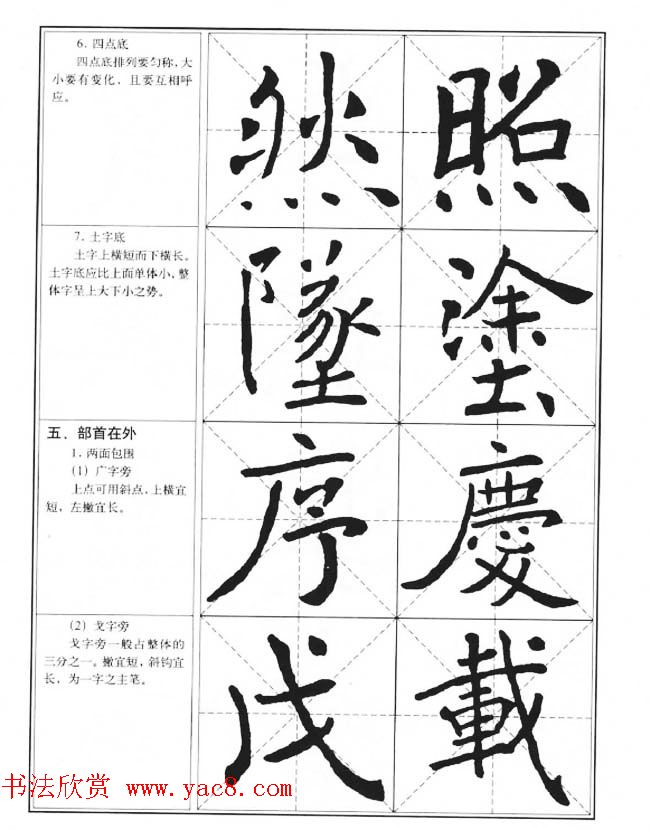 6. 四点底
四点底排列要匀称,大
小要有变化,且要互相呼
应。
然 照
7. 土字底
土字上横短而下横长。
土字底应比上面单体小,整
体字呈上大下小之势。
墜 塗
五、部首在外
1. 两面包围
(1) 广字旁
上点可用斜点,上横宜
短,左撇宜长。
序 慶
(2) 戈字旁
戈字旁一般占整体的
三分之一。撇宜短,斜钩宜
长,为一字之主笔。
戊 載
书法欣赏 www.yac8.com